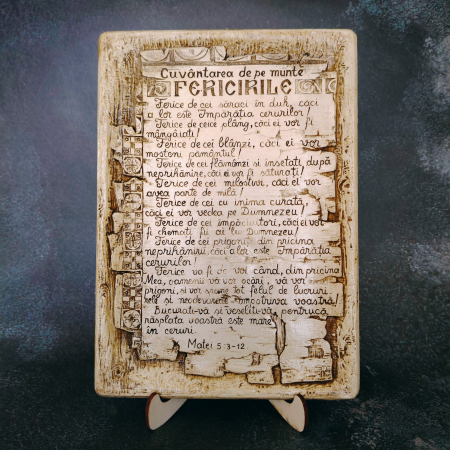 Cuvântarea de pe munte
FERICIRILE
Ferice de cei săraci în duh, căci
a lor este Împărăția cerurilor!
Ferice de ceice plâng, căci ei vor fi
mângâiați!
Ferice de cei blânzi, căci ei vor
moșteni pământul!
Ferice de cei flămânzi și însetați după
neprihănire, căci ei va fi săturați!
Ferice de cei milostivi, căci ei vor
avea parte de milă!
Ferice de cei cu inima curată,
căci ei vor vedea pe Dumnezeu!
Ferice de cei împăciuitori, căci ei vor
fi chemați fii ai lui Dumnezeu!
Ferice de cei prigoniți din pricina
neprihănirii, căci a lor este Împărăția
cerurilor!
Ferice va fi de voi când, din pricina
Mea, oamenii vă vor ocări, vă vor
prigoni, și vor spune tot felul de lucruri
rele și neadevărate împotriva voastră!
Bucurați-vă și veseliți-vă, pentrucă
răsplata voastră este mare
în ceruri.
Matei 5:3-12